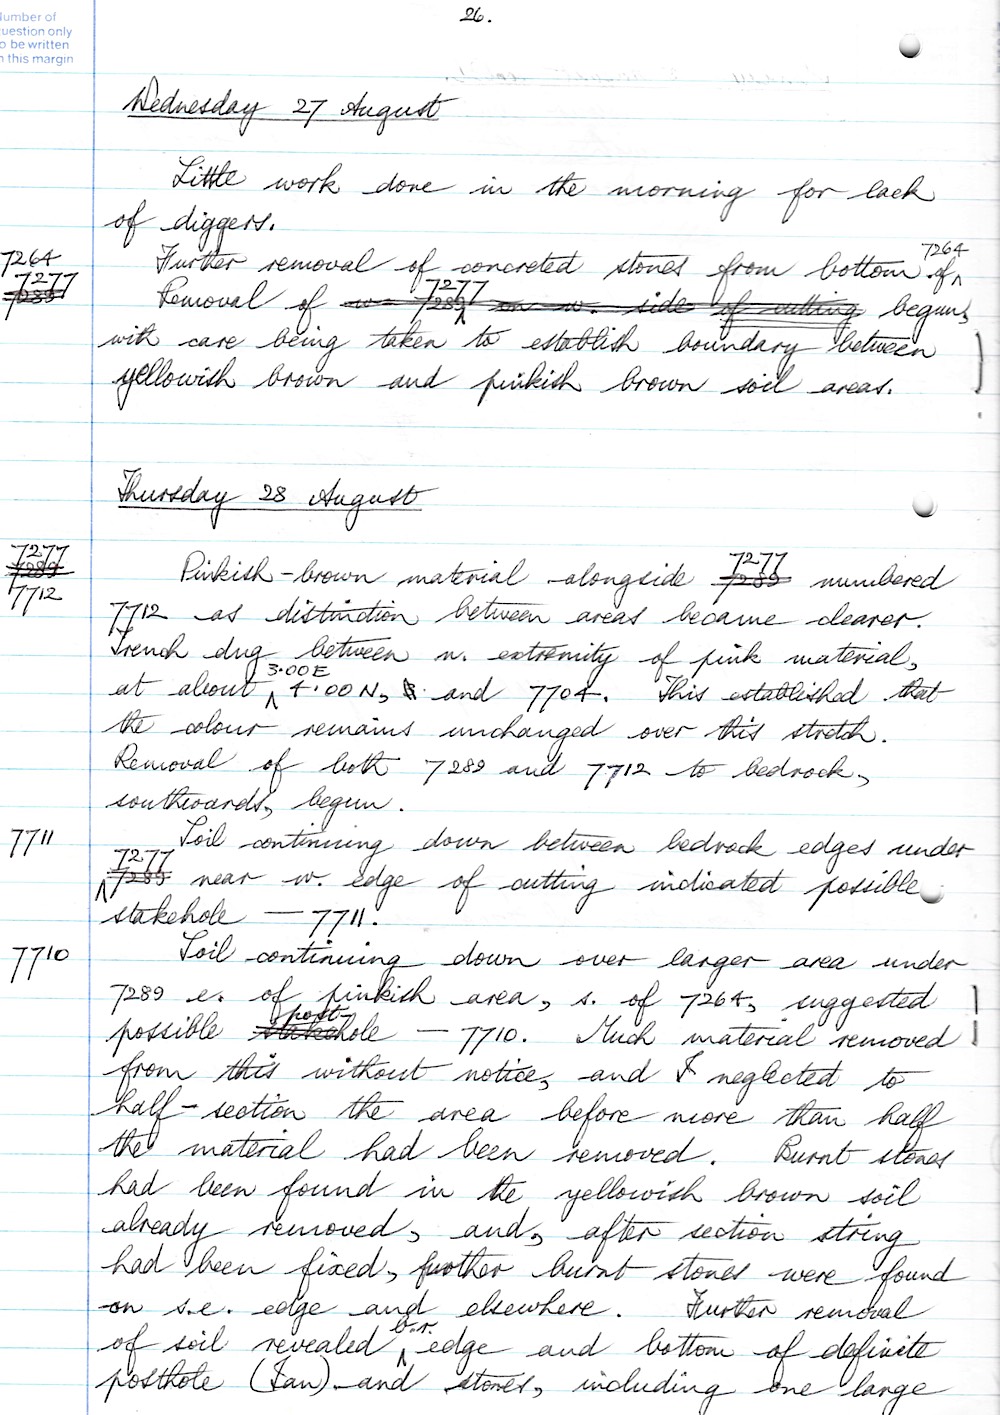 26.
Number of
question only
to be written
in this margin
Wednesday 27 August
Little work done in the morning for lack
of diggers.
7264
7264
Further removal of concreted stones from bottom of
7277
7289
7277
Removal of 7289 on w. side of cutting begun,
with care being taken to establish boundary between
yellowish brown and pinkish brown soil areas.
Thursday 28 August
7277
7289
7712
7277
Pinkish-brown material alongside 7289 numbered
7712 as distinction between areas became clearer.
Trench dug between n. extremity of pink material,
3.00E
at about 4.00N, and 7704. This established that
the colour remains unchanged over this stretch.
Removal of both 7289 and 7712 to bedrock,
southwards, begun.
7711
Soil continuing down between bedrock edges under
7277
7289 near w. edge of cutting indicated possible
stakehole — 7711.
7710
Soil continuing down over larger area under
7289 e. of pinkish area, s. of 7264, suggested
post-
possible stakehole — 7710. Much material removed
from this without notice, and I neglected to
half-section the area before more than half
the material had been removed. Burnt stones
had been found in the yellowish brown soil
already removed, and, after section string
had been fixed, further burnt stones were found
on s.e. edge and elsewhere. Further removal
b.r.
of soil revealed edge and bottom of definite
posthole (Ian) and stones, including one large